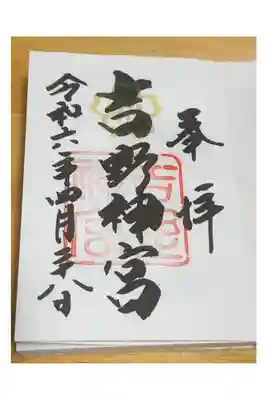 奉拝
吉野神宮
令和六年四月二十八日